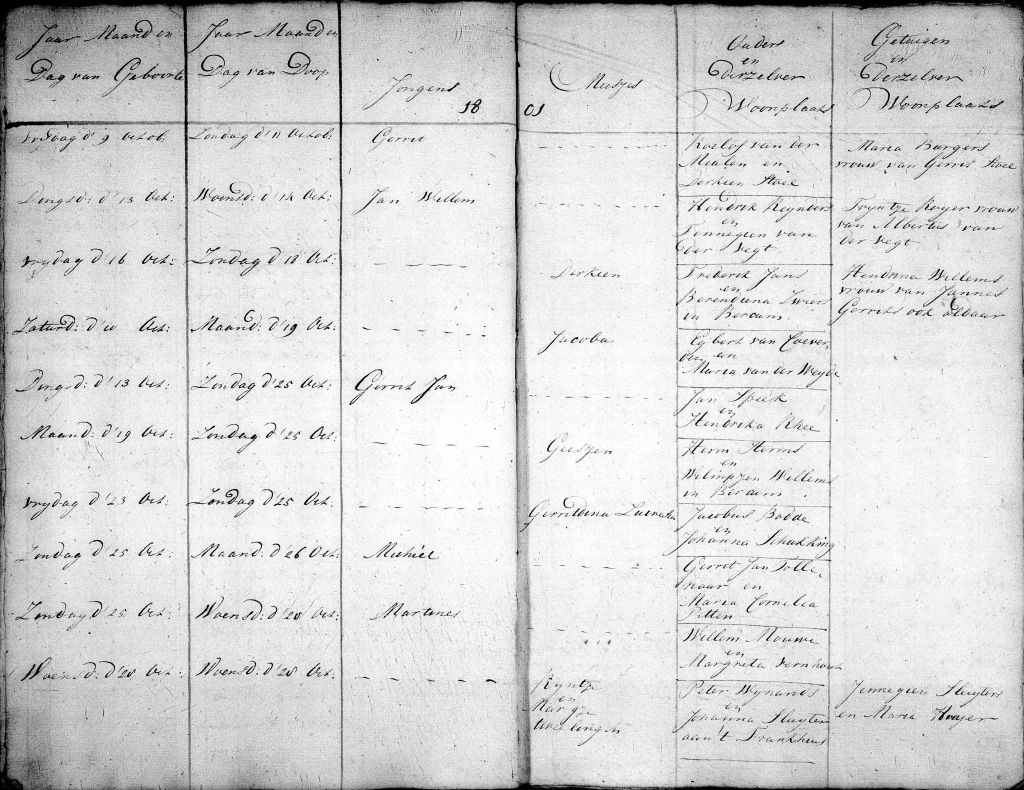 Jaar Maand en
Dag van Geboorte
Jaar Maand en
Dag van Doop
Jongens
18
01
Meisjes
Ouders
en
Derzelver
Woonplaats
Getuigen
en
Derzelver
Woonplaats
Vrijdag d' 9 Octob:
Zondag d' 11 Octob:
Gerrit
Roelof van der
Meulen en
Derkien Stoel
Maria Burgers
vrouw van Gerrit Stoel
Dingsd: d' 13 Oct:
Woensd: d' 14 Oct:
Jan Willem
Hendrik Reynders
en
Jennegien van
der Vegt
Tryntje Royer vrouw
van Albertus van
der Vegt
Vrydag d' 16 Oct:
Zondag d' 18 Oct:
Derkien
Frederik Jans
en
Berendiena Zwiers
in Bercum
Hendrina Willems
vrouw van Jannes
Gerrits ook aldaar
Zaturd: d' 10 Oct:
Maand: d' 19 Oct:
Jacoba
Egbert van Coever
den en
Maria van der Weyde
Dingsd: d' 13 Oct:
Zondag d' 25 Oct:
Gerrit Jan
Jan Spiek
en
Hendrika Rhee
Maand: d' 19 Oct:
Zondag d' 25 Oct:
Geesjen
Herm Herms
en
Willems
in Bercum
Vrydag d' 23 Oct:
Zondag d' 25 Oct:
Gerritdina
Jacobus Bodde
en
Johanna Schukking
Zondag d' 25 Oct:
Maand: d' 26 Oct:
Michiel
Gerrit Jan Tolle,
naar en
Maria Cornelia
Pitten
Zondag d' 25 Oct:
Woensd: d' 28 Oct:
Martines
Willem Mouwe
en
Margreta Vernhout
Woensd: d' 28 Oct:
Woensd: d' 28 Oct:
en
tweelingen
Peter Wynands
en
Johanna Sluyter
aan't Frankhuis
Jennegien Sluyters
en Maria Hooyer